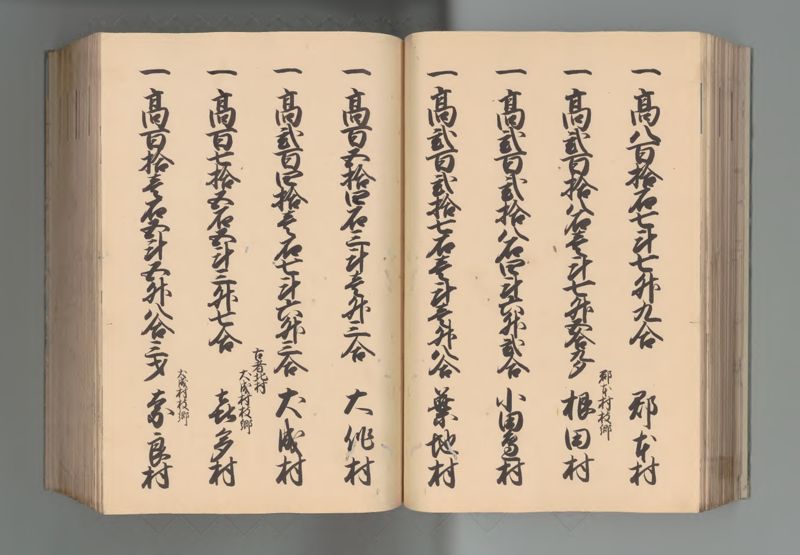 一 高八百拾石七斗七升九合 郡本村
一 高弐百拾八石壱斗七升五合九夕 郡本村枝郷 根田村
一 高弐百弐拾八石四斗六升弐合 小田部村
一 高弐百弐拾七石壱斗壱升八合 葉地村
一 高百五拾四石三斗壱升三合 大作村
一 高弐百四拾壱石七斗六升三合 大成村
一 高百七拾五石五斗三升七合 古者北村 大成村枝郷 喜多村
一 高百拾壱石五斗五升八合三夕 大成村枝郷 奈良村